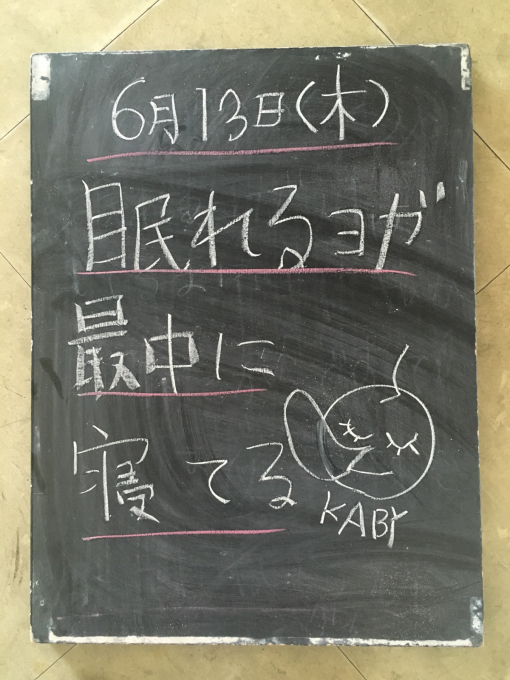 6月13日(木)
眠れるヨガ
最中に
寝てる
KABY